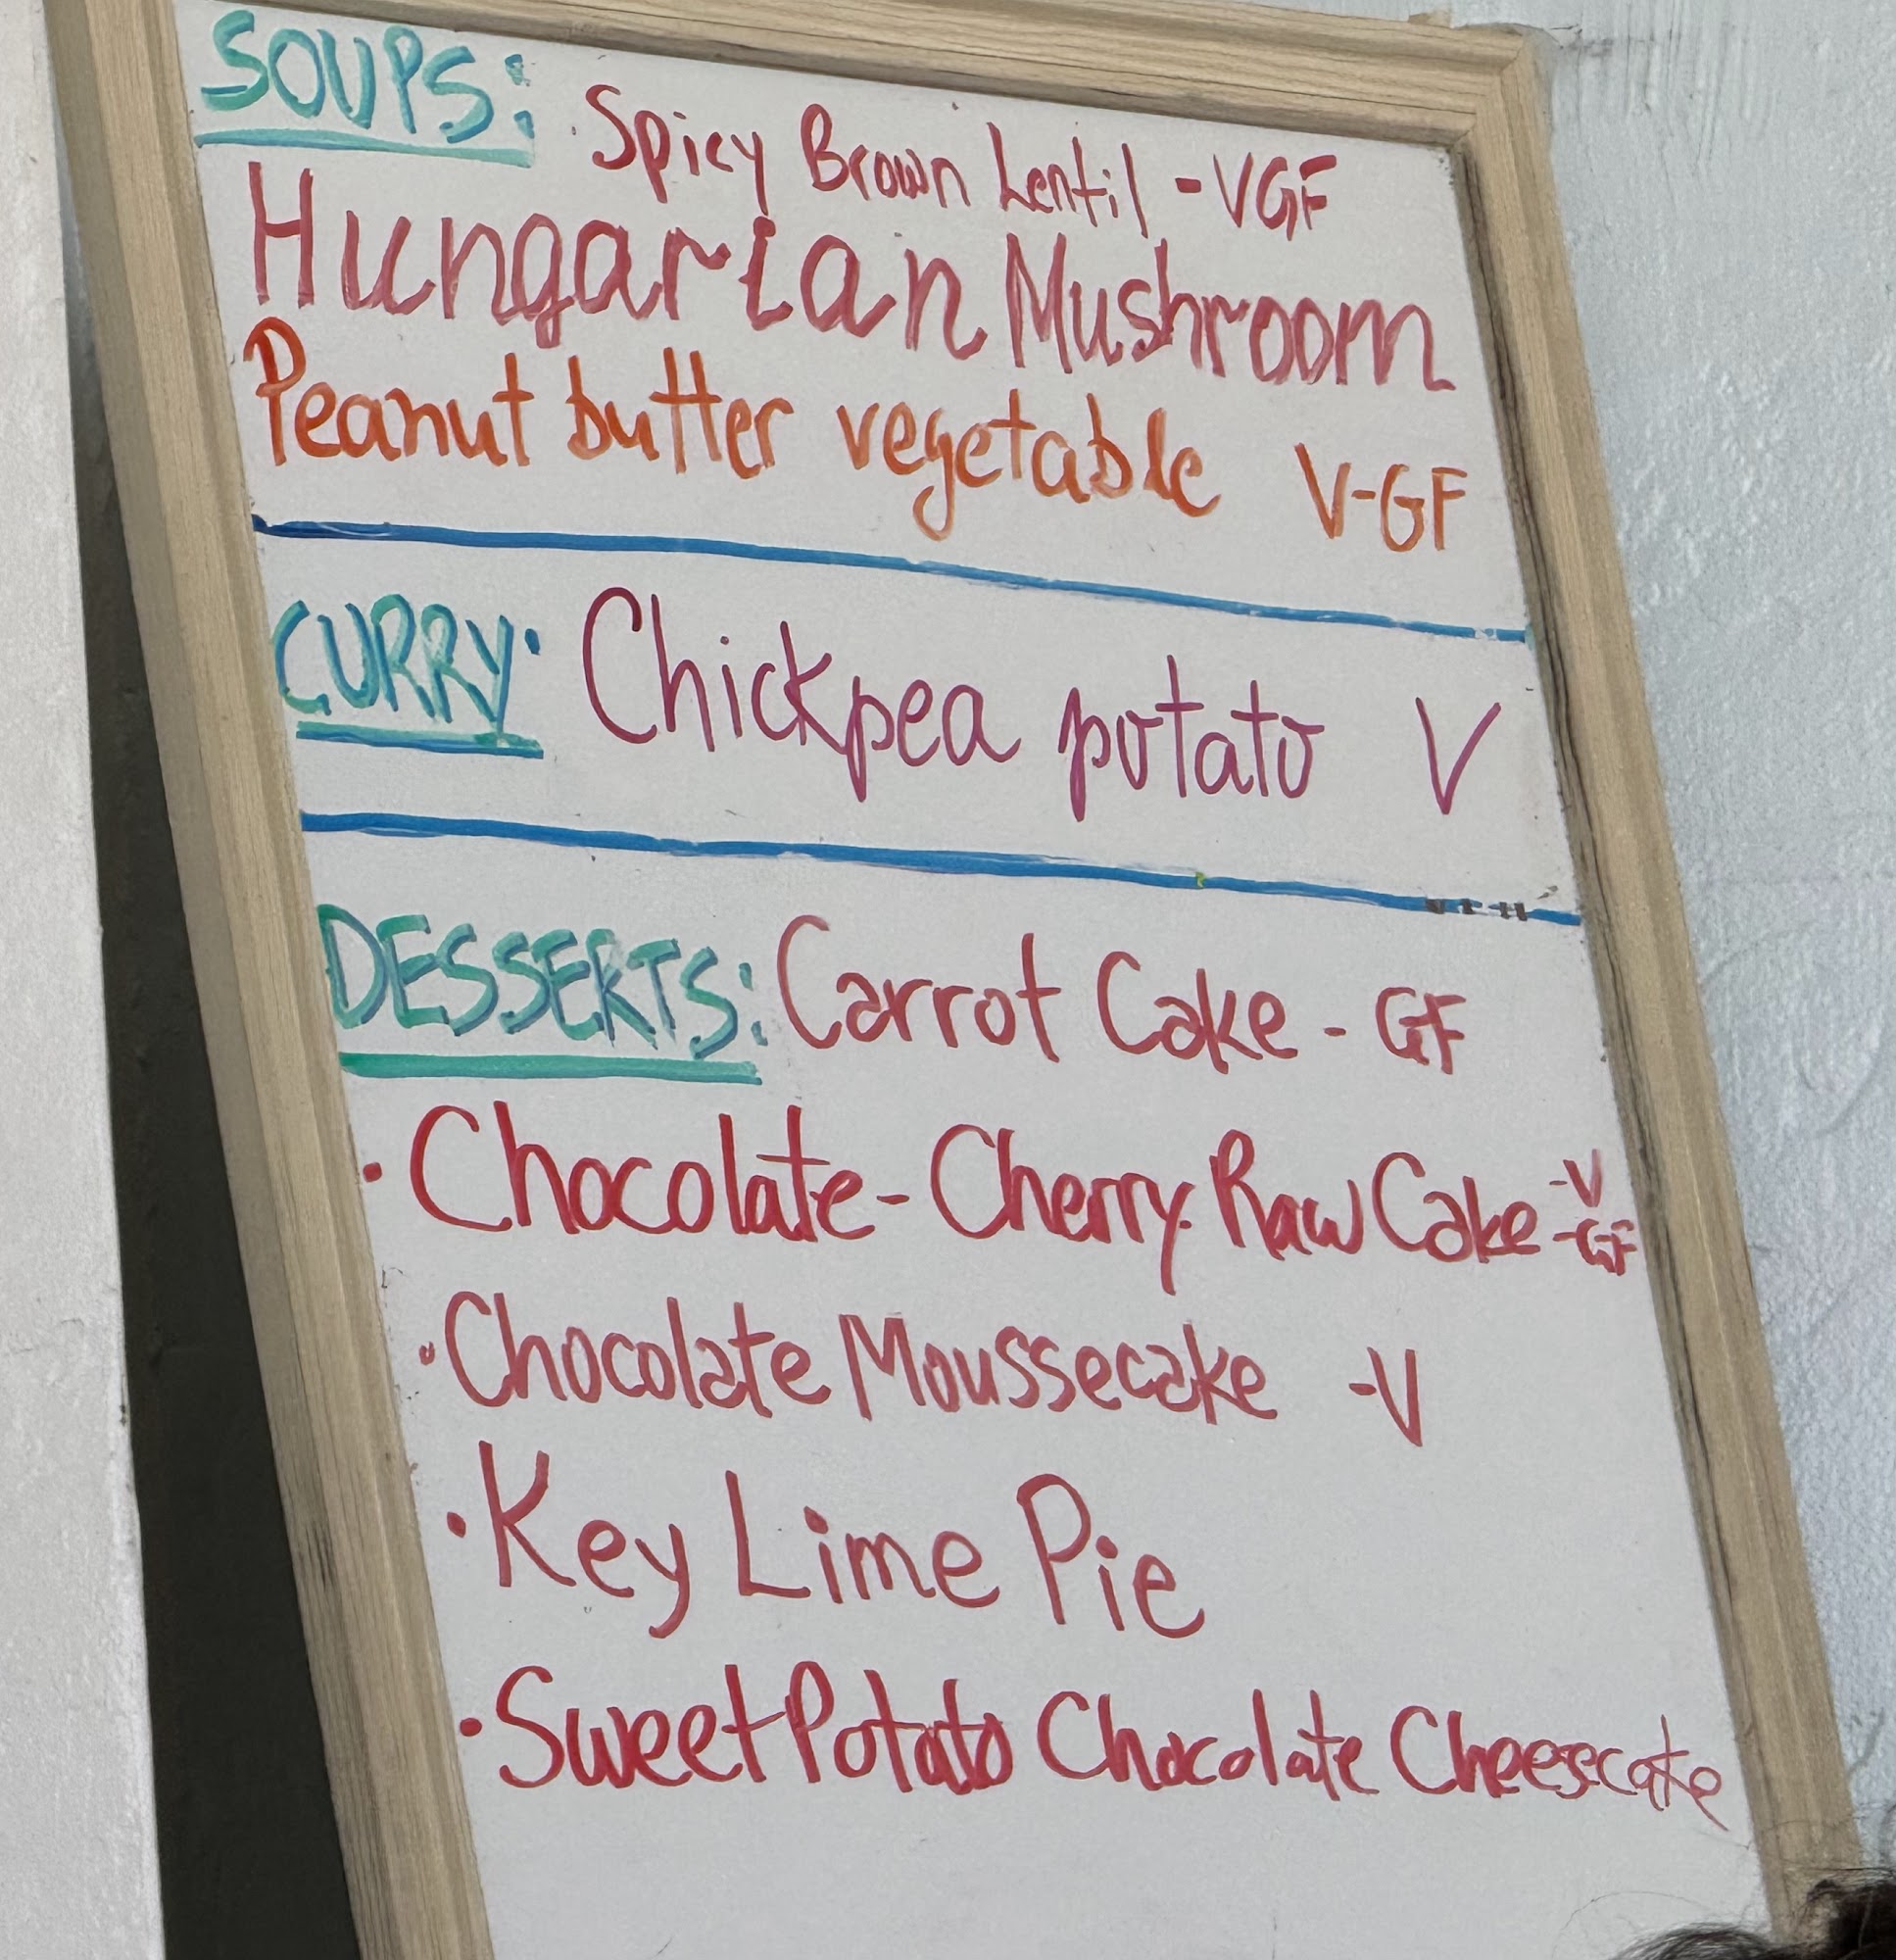 SOUPS: Spicy Brown Lentil - VGF
Hungarian Mushroom
Peanut butter vegetable V-GF
CURRY: Chickpea potato V
DESSERTS: Carrot Cake - GF
· Chocolate - Cherry Raw Cake -V -GF
· Chocolate Moussecake -V
· Key Lime Pie
· Sweet Potato Chocolate Cheesecake